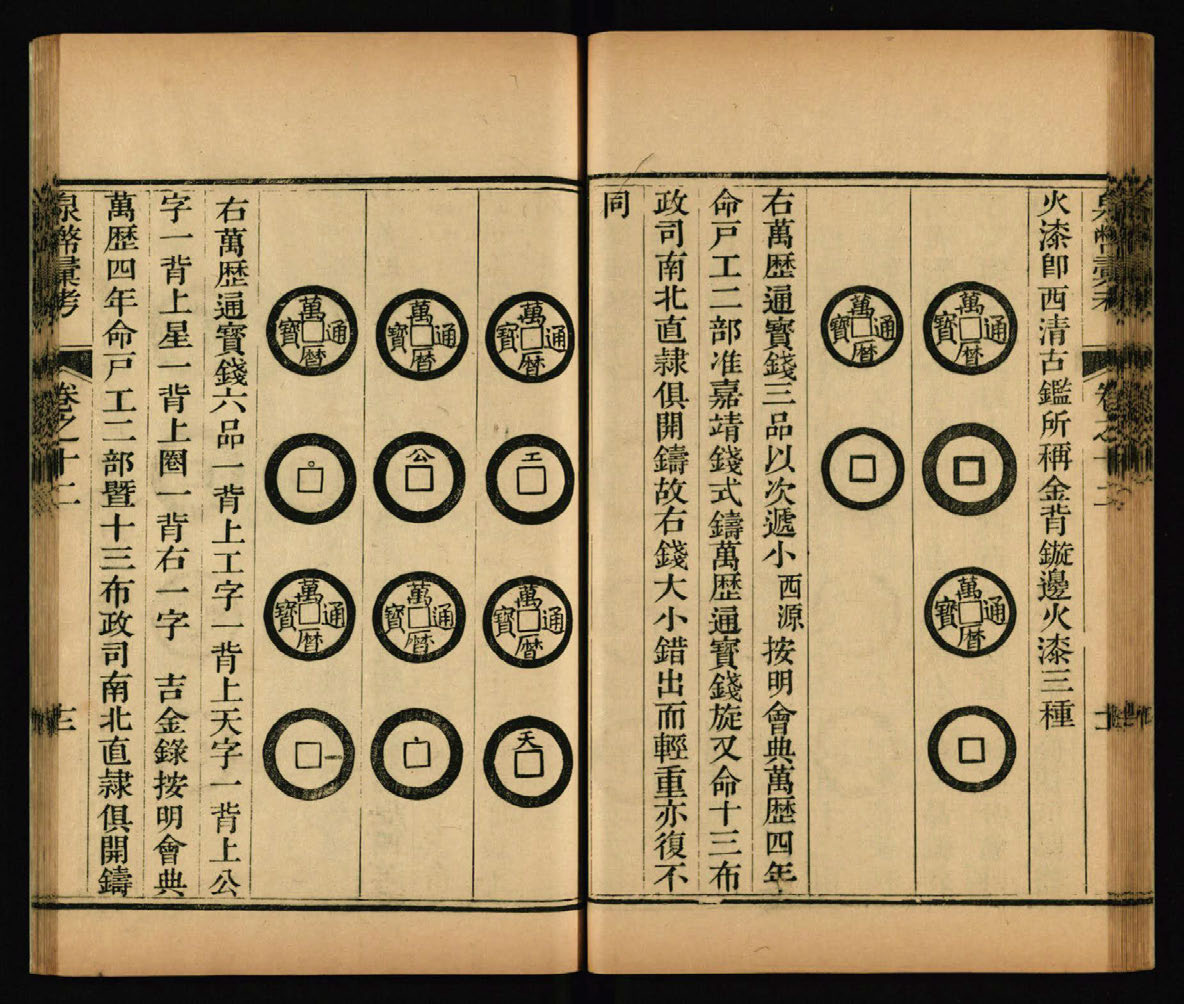 卷之十二
火漆卽西清古鑑所稱金背鏇邊火漆三種
萬暦通寶
萬暦通寶
萬暦通寶
右萬歷通寶錢三品以次遞小 西源 按明會典萬歷四年
命戸工二部准嘉靖錢式鑄萬歷通寶錢旋又命十三布
政司南北直隸俱開鑄故右錢大小錯出而輕重亦復不
同
萬暦通寶
工
萬暦通寶
天
萬暦通寶
公
萬暦通寶
萬暦通寶
萬暦通寶
一
右萬歷通寶錢六品一背上工字一背上天字一背上公
字一背上星一背上圈一背右一字 吉金錄按明會典
萬歷四年命戸工二部暨十三布政司南北直隸俱開鑄
泉幣彙考 卷之十二 三